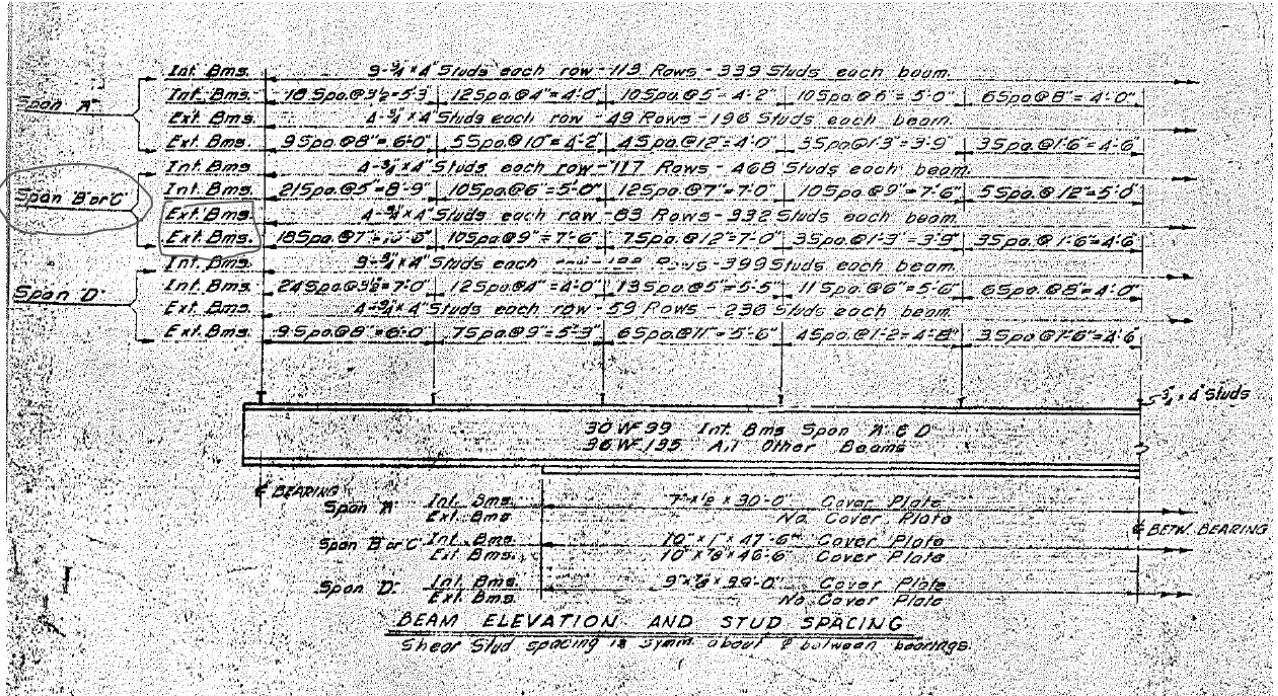 Int. Bms. 3-¾"x4" Studs each row-113 Rows-339 Studs each beam.
Span "A" Int. Bms. 18 Spa.@3½=5'-3" 12 Spa.@4"=4'-0" 10 Spa.@5=4'-2" 10 Spa.@6=5'-0" 6 Spa@8"=4'-0"
Ext. Bms. 4-¾"x4" Studs each row-49 Rows-196 Studs each beam.
Ext. Bms. 9 Spa@8"=6'-0" 5 Spa@10"=4'-2" 4 Spa.@12"=4'-0" 3 Spa@1'-3"=3'-9" 3 Spa.@1'-6"=4'-6"
Int. Bms. 4-¾"x4" Studs each row-117 Rows-468 Studs each beam.
Span "B" or "C" Int. Bms. 21 Spa.@5"=8'-9" 10 Spa.@6"=5'-0" 12 Spa.@7"=7'-0" 10 Spa.@9"=7'-6" 5 Spa.@12"=5'-0"
Ext. Bms. 4-¾"x4" Studs each row-83 Rows-332 Studs each beam.
Ext. Bms. 18 Spa.@7"=10'-6" 10 Spa@9"=7'-6" 7 Spa.@12"=7'-0" 3 Spa@1'-3"=3'-9" 3 Spa.@1'-6"=4'-6"
Int. Bms. 3-¾"x4" Studs each Rows-399 Studs each beam.
Span "D" Int. Bms. 24 Spa@3½=7'-0" 12 Spa@4"=4'-0" 13 Spa.@5"=5'-5" 11 Spa.@6"=5'-6" 6 Spa@8"=4'-0"
Ext. Bms. 4-¾"x4" Studs each row-59 Rows-236 Studs each beam.
Ext. Bms. 9 Spa@8"=6'-0" 7 Spa.@9"=5'-3" 6 Spa.@11"=5'-6" 4 Spa.@1'-2=4'-8" 3 Spa@1'-6"=4'-6"
¾"x4" Studs
30 WF 99 Int. Bms Span "A" & "D"
36 WF 135 All Other Beams
℄ BEARING
Span "A" Int. Bms. 7"x½"x30'-0" Cover Plate
Ext. Bms. No Cover Plate
℄ BETW. BEARING
Span "B" or "C" Int. Bms. 10"x1"x47'-6" Cover Plate
Ext. Bms. 10"x⅞"x46'-6" Cover Plate
Span "D" Int. Bms. Cover Plate
Ext. Bms. No Cover Plate
BEAM ELEVATION AND STUD SPACING
Shear Stud spacing is symm. about ℄ between bearings.